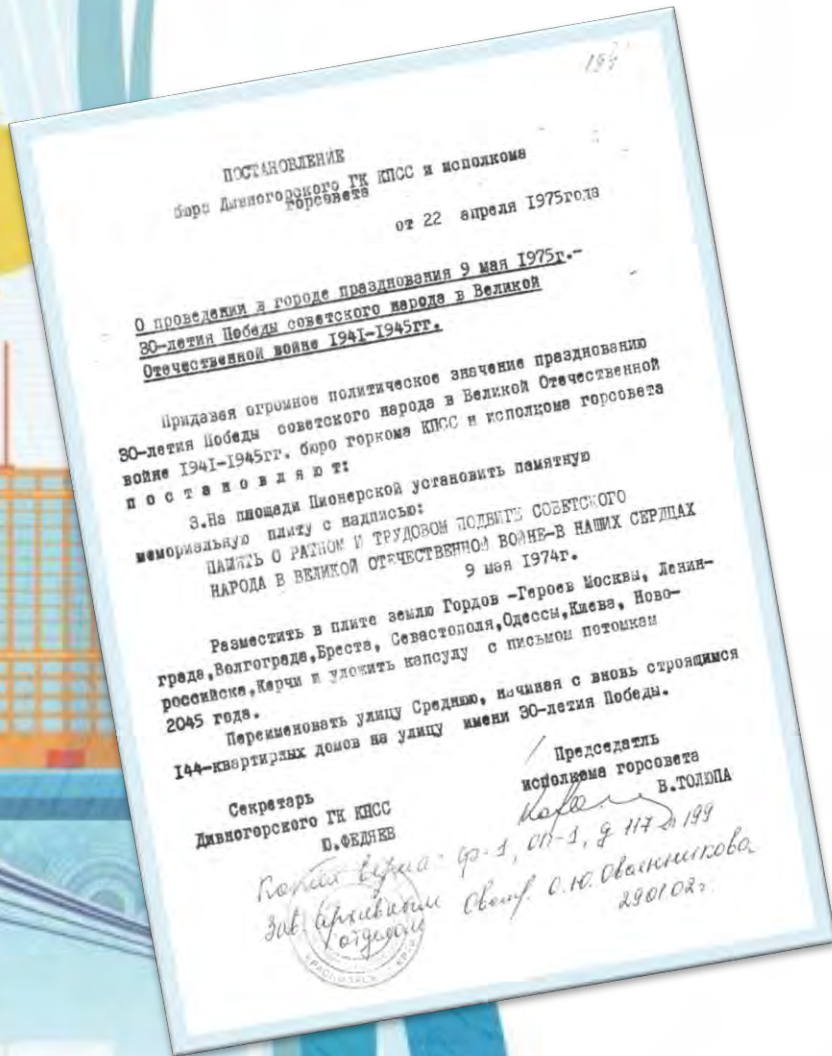 199
ПОСТАНОВЛЕНИЕ
бюро Дивногорского ГК КПСС и исполкома
горсовета
от 22 апреля 1975года
О проведении в городе празднования 9 мая 1975г.-
30-летия Победы советского народа в Великой
Отечественной войне 1941-1945гг.
Придавая огромное политическое значение празднованию
30-летия Победы советского народа в Великой Отечественной
войне 1941-1945гг. бюро горкома КПСС и исполкома горсовета
п о с т а н о в л я ю т:
3.На площади Пионерской установить памятную
мемориальную плиту с надписью:
ПАМЯТЬ О РАТНОМ И ТРУДОВОМ ПОДВИГЕ СОВЕТСКОГО
НАРОДА В ВЕЛИКОЙ ОТЕЧЕСТВЕННОЙ ВОЙНЕ-В НАШИХ СЕРДЦАХ
9 мая 1974г.
Разместить в плите землю Гордов -Героев Москвы, Ленин-
града,Волгограда,Бреста, Севастополя,Одессы,Киева, Ново-
российска,Керчи и уложить капсулу с письмом потомкам
2045 года.
Переименовать улицу Среднюю, начиная с вновь строящимся
144-квартирных домов на улицу имени 30-летия Победы.
Секретарь
Дивногорского ГК КПСС
Ю.ФЕДЯЕВ
Председатль
исполкома горсовета
В.ТОЛЮПА
Копия верна: ф-1, оп-1, д 117 л 199
Зав. архивным отделом О.Ю. Овчинникова
29.01.02г.